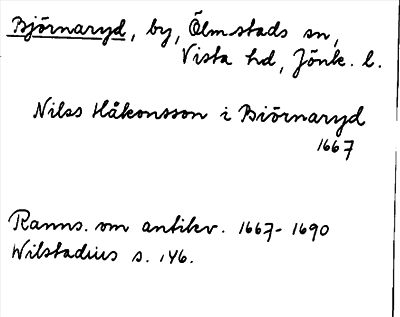 Björnaryd, by, Ölmstads sn,
Vista hd, Jönk. l.
Nilss Håkonsson i Biörnaryd
1667
Ranns. om antikv. 1667-1690
Wilstadius s. 146.